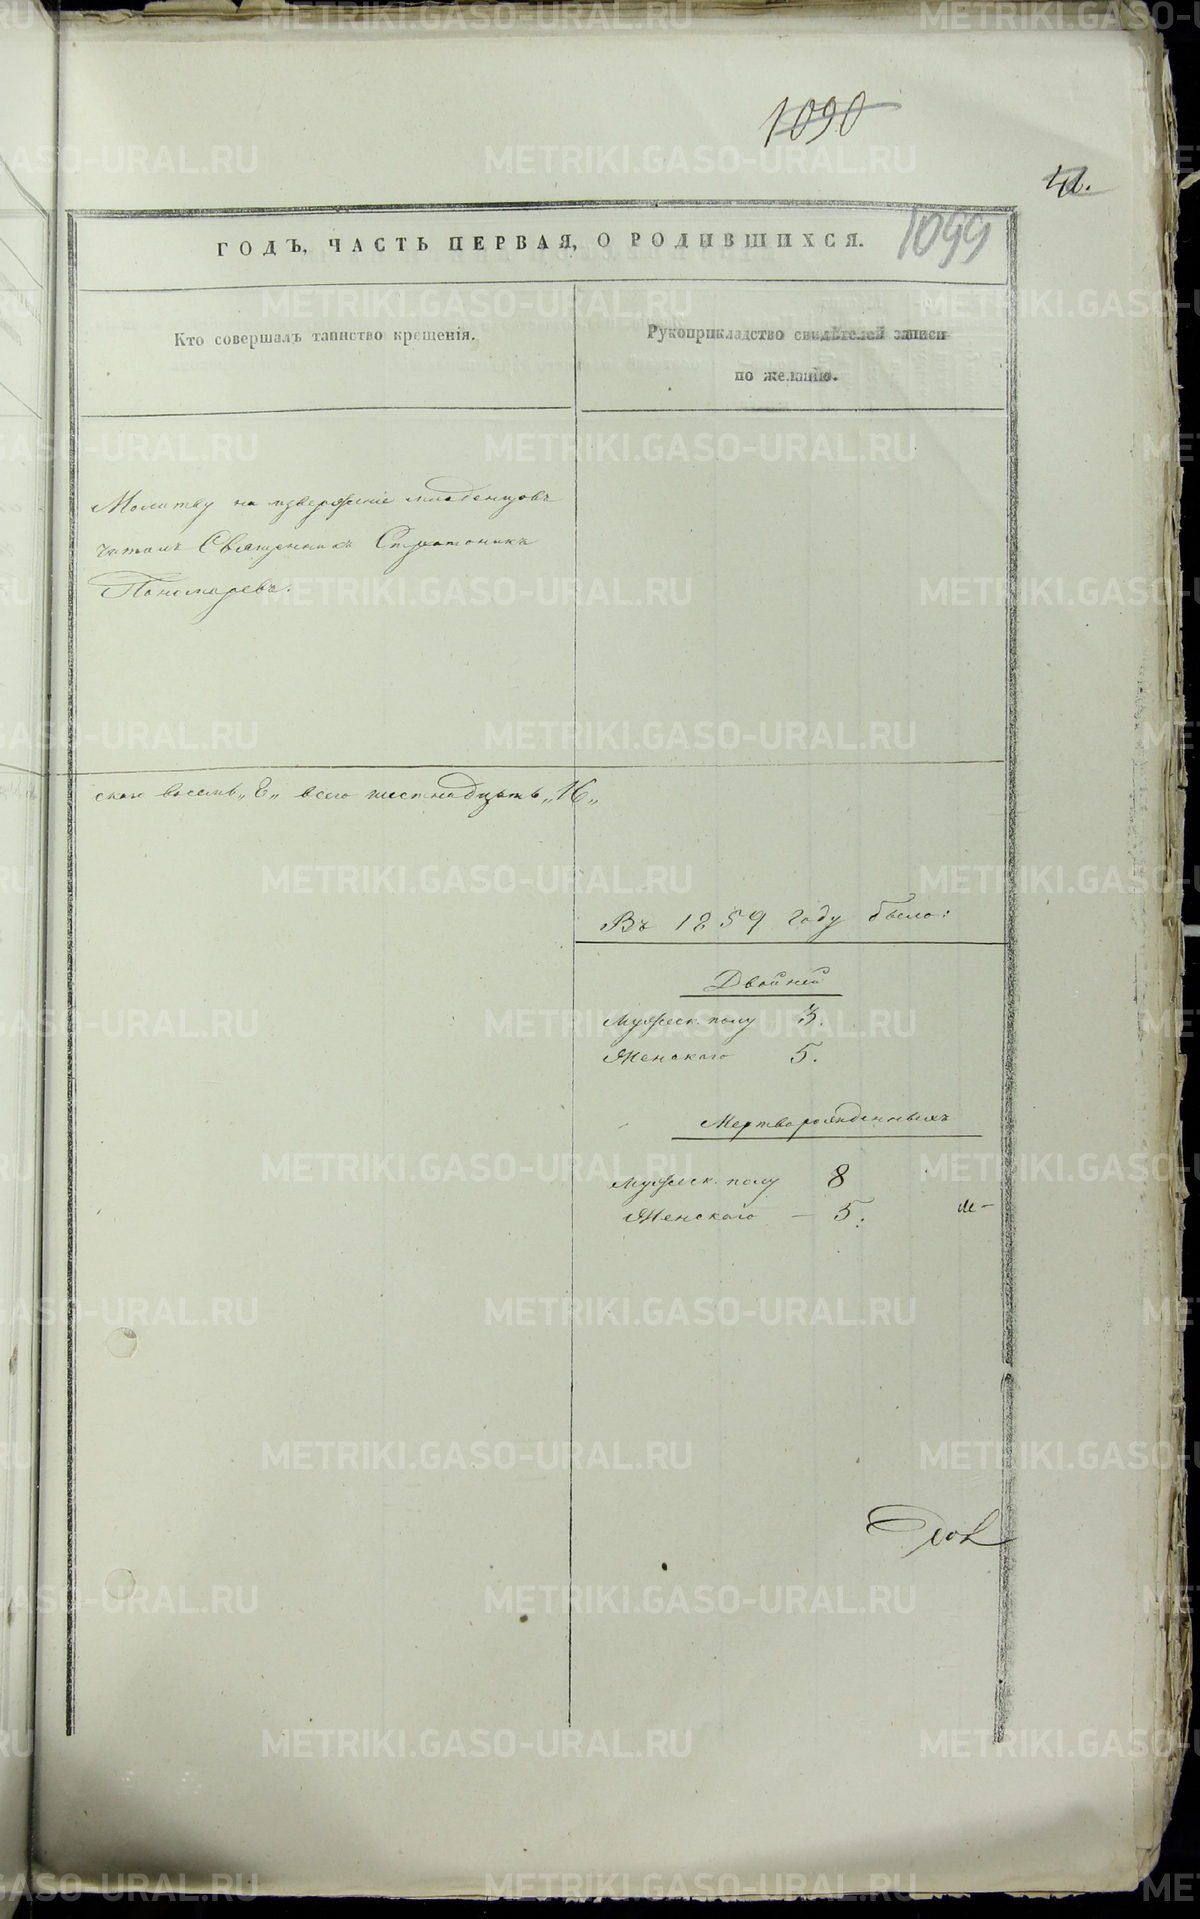 1090
41.
1099
ГОДЪ, ЧАСТЬ ПЕРВАЯ, О РОДИВШИХСЯ.
Кто совершалъ таинство крещенія.
Рукоприкладство свидѣтелей записи
по желанію.
Молитву на изверженіе младенцовъ
читалъ Священникъ Стратоникъ
Пономаревъ.
скаго восемь „8„ всего шестнадцать „16„
Въ 1859 году было:
Двойней
Мужеск. полу 3.
Женскаго 5.
Мертворожденныхъ
Мужеск. полу 8
Женскаго – 5.
METRIKI.GASO-URAL.RU